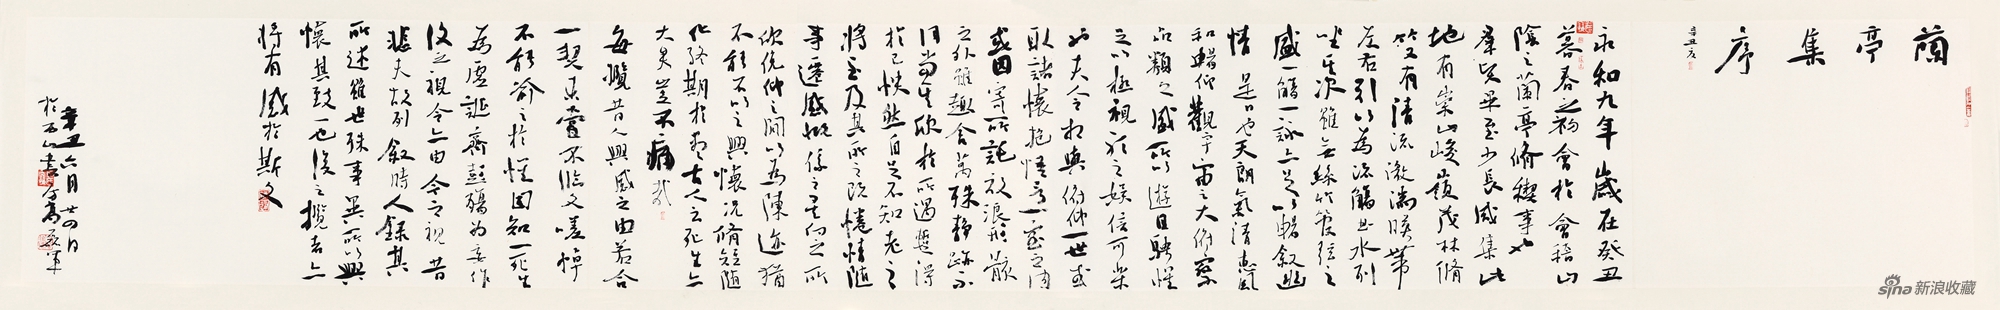 蘭亭集序
辛丑夏
永和九年歲在癸丑
暮春之初會於會稽山
陰之蘭亭脩稧事也
羣賢畢至少長咸集此
地有崇山峻嶺茂林脩
竹又有清流激湍暎帶
左右引以為流觴曲水列
坐其次雖無絲竹管弦之
盛一觴一詠亦足以暢敘幽
情是日也天朗氣清惠風
和暢仰觀宇宙之大俯察
品類之盛所以遊目騁懷
足以極視聽之娛信可樂
也夫人之相與俯仰一世或
取諸懷抱悟言一室之內
或因寄所託放浪形骸
之外雖趣舍萬殊靜躁不
同當其欣於所遇暫得
於己怏然自足不知老之
將至及其所之既惓情隨
事遷感慨係之矣向之所
欣俛仰之間以為陳迹猶
不能不以之興懷況脩短隨
化終期於盡古人云死生亦
大矣豈不痛哉
每攬昔人興感之由若合
一契未嘗不臨文嗟悼
不能喻之於懷固知一死生
為虛誕齊彭殤為妄作
後之視今亦由今之視昔
悲夫故列敘時人錄其
所述雖世殊事異所以興
懷其致一也後之攬者亦
將有感於斯文
辛丑六月廿四日
sina新浪收藏